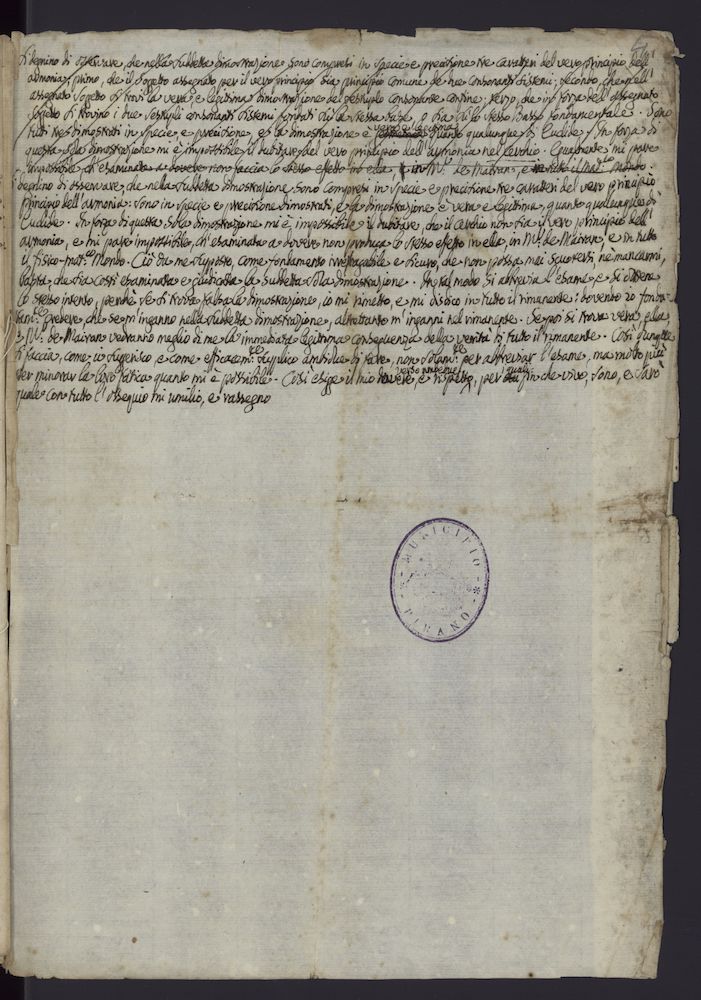 si degnino di osservare, che nella suddetta dimostrazione sono compresi in specie e precisione tre caratteri del vero principio dell'
armonia; primo, che il sogetto assegnato per il vero principio sia principio comune de tre consonanti sistemi; secondo, che nell'
assegnato sogetto si trovi la vera, e legitima dimostrazione del sestuplo consonante confine; terzo, che in forza dell'assegnato
sogetto si trovino i due sestupli consonanti sistemi formati su la stessa base, o sia su lo stesso Basso fondamentale. Sono
tutti tre dimostrati in specie, e precisione, e la dimostrazione è quanto qualunque di Euclide. In forza di
questa sola dimostrazione mi è impossibile il dubitare del vero principio dell'armonia nel cerchio. Egualmente mi pare
impossibile, ch'esaminata a dovere non faccia lo stesso effetto in ella, in Mr. de Mairan, e
degnino di osservare, che nella suddetta dimostrazione sono compresi in specie e precisione tre caratteri del vero principio
principio dell'armonia. Sono in specie e precisione dimostrati, e la dimostrazione è vera e legitima, quanto qualunque di
Euclide. In forza di questa sola dimostrazione mi è impossibile il dubitare, che il cerchio non sia il vero principio dell'
armonia, e mi pare impossibile, ch'esaminata a dovere non produca lo stesso effetto in ella, in Mr. de Mairan, e in tutto
il fisico-mat.co Mondo. Ciò da me supposto, come fondamento irrefragabile e sicuro, che non possa mai scuotersi, ne mancarmi,
basta, che sia così esaminata e giudicata la suddetta sola dimostrazione. In tal modo si abbrevia l'esame, e si ottiene
lo stesso intento, perchè se si trova falsa la dimostrazione, io mi rimetto, e mi disdico in tutto il rimanente; dovendo io
credere, che se m'inganno nella suddetta dimostrazione, altrettanto m'inganni nel rimanente. Se poi si trova vera, ella
e Mr. de Mairan vedranno meglio di me la immediata legitima conseguenza della verità in tutto il rimanente. Così dunque
si faccia, come io suggerisco, e come efficacem.te supplico ambidue di fare, non solam.te per abbreviar l'esame, ma molto più
per minorar la loro fatica quanto mi è possibile. Così esige il mio dovere, e rispetto, per cui fin che vivo, sono, e sarò
verso ambidue
quale con tutto l'ossequio mi umilio, e rassegno
MUNICIPIO
PIRANO